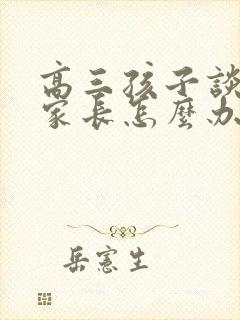 高三孩子談
家長怎麼办
岳憲生